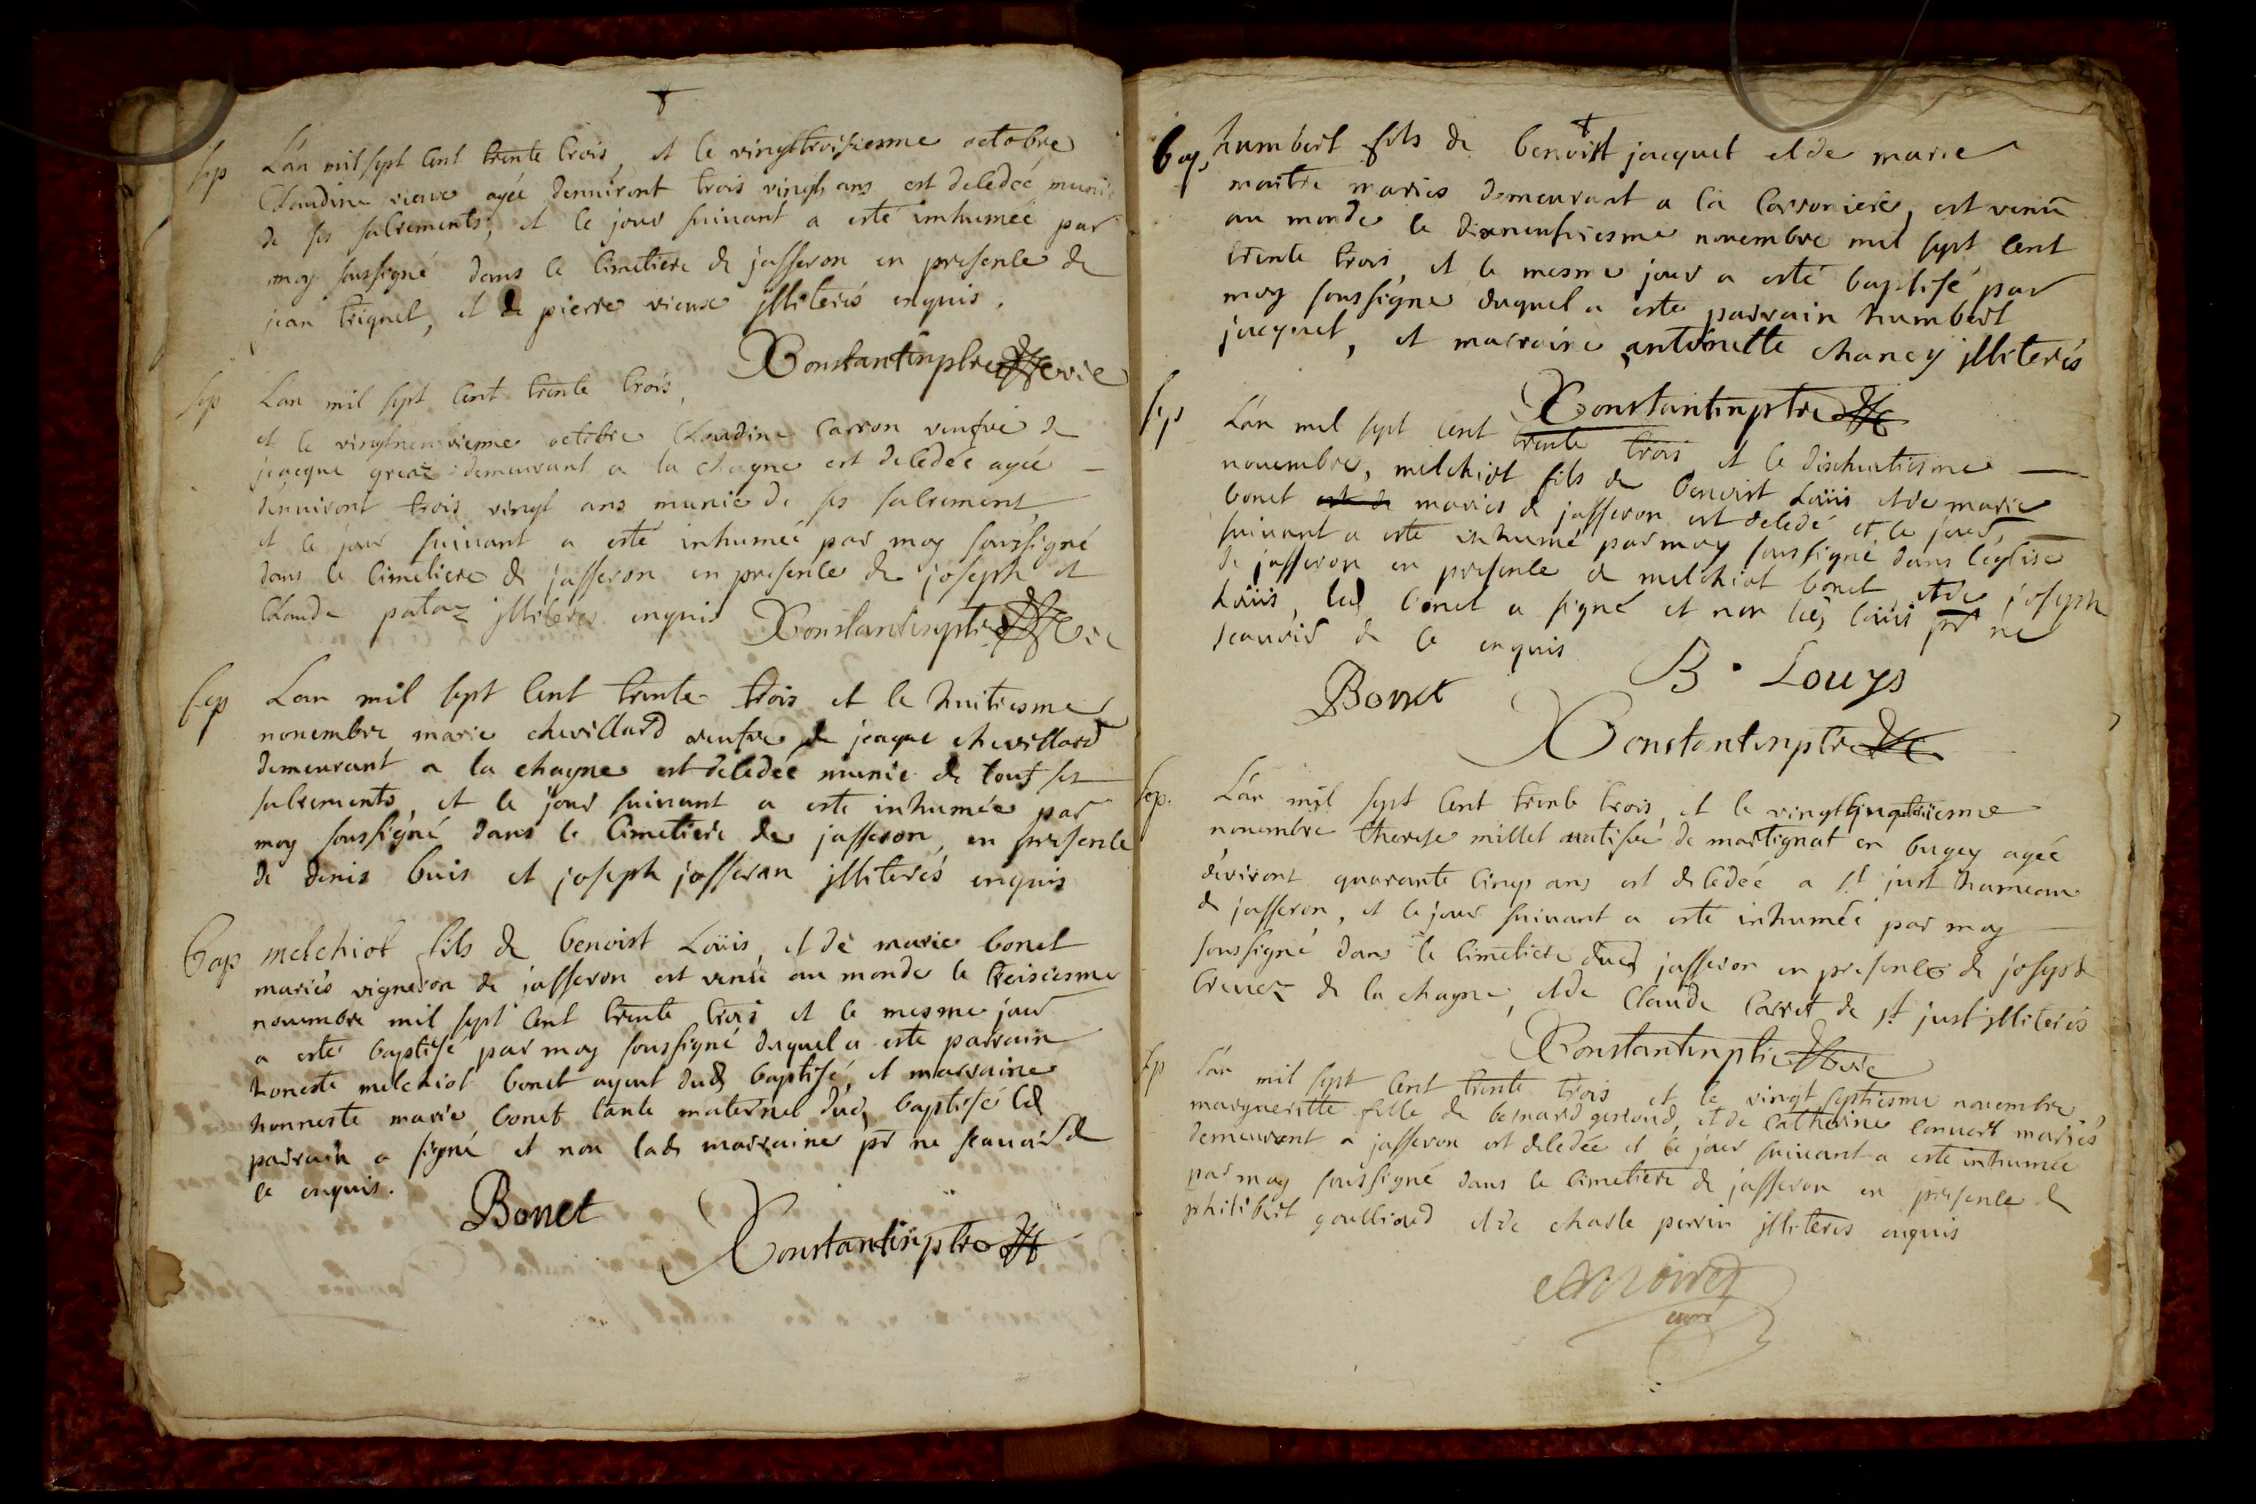 sep L'an mil sept cent trente trois, et le vingttroisiesme octobre
Claudine vieux agée denviront trois vingts ans est decedeé munie
de ses sacrements, et le jour suivant a esté inhumeé par
moy sussigné dans le cimetiere de jasseron en presence de
jean triquet, et de pierre vieux jlliterés enquis.
Constantin ptre vie
sep Lan mil sept cent trente trois,
et le vingtneuvieme octobre Claudine Carron veufve de
jeacque greaz demeurant a la chagne est decedée agée
denviront trois vingt ans munie de ses sacrement
et le jour suivant a esté inhumée par moy soussigné
dans le cimetiere de jasseron en presence de joseph et
Claude pataz jlliterés enquis Constantin ptre vic
sep Lan mil sept cent trente trois et le huitiesme
novembre marie chevillard veufve de jeaque chevillard
demeurant a la chagne est decedée munie de tous ses
sacrements, et le jour suivant a esté inhumée par
moy soussigné dans le cimetiere de jasseron, en presence
de denis buis et joseph jasseran jlliterés enquis
bap melchiot fils de benoist Loüis, et de marie bonet
mariés vigneron de jasseron est venü au monde le treisiesme
novembre mil sept cent trente trois et le mesme jour
a esté baptisé par moy soussigné duquel a esté parrain
honeste melchiot bonet ayeut dud baptisé, et marraine
honneste marie bonet tante maternel dud baptisé led
parrain a signé et non lade marraine pr ne scavoir de
ce enquis.
Bonet
Constantin ptre
bap, humbert fils de benoist jacquet et de marie
maitre mariés demeurant a la Carroniere, est venü
au monde le dixneufviesme novembre mil sept cent
trente trois, et le mesme jour a esté baptisé par
moy soussigné duquel a esté parrain humbert
jacquet, et marraine antoinette chaney jlliterés
Constantin ptre
sep L'an mil sept cent trente trois et le dixhuitiesme
novembre, melchiot fils de benoist Loüis et de marie
bonet mariés de jasseron est decedé et le jour
suivant a esté inhumé par moy soussigné dans l'eglise
de jasseron en presence de melchiot bonet et de joseph
Loüis, led bonet a signé et non led loüis pr ne
scavoir de ce enquis
B. Louys
Bonet
Constantin ptre
sep. L'an mil sept cent trente trois, et le
novembre therese millet de martignat en bugey agée
d'eviront quarante cinqs ans est decedée a st just hameau
de jasseron, et le jour suivant a esté inhumée par moy
soussigné dans le cimetiere dued jasseron en presence de joseph
de la chagne, et de Claude Carret de st just jlliterés
Constantin ptre vic
sep L'an mil sept cent trente trois et le vingt septiesme novembre
margueritte fille de bernard, et de Catherine Convert mariés
demeurant a jasseron est decedée et le jour suivant a esté inhumée
par moy soussigné dans le cimetiere de jasseron en presence de
philibert goullioud et de charle perrin jlliterés enquis
curé